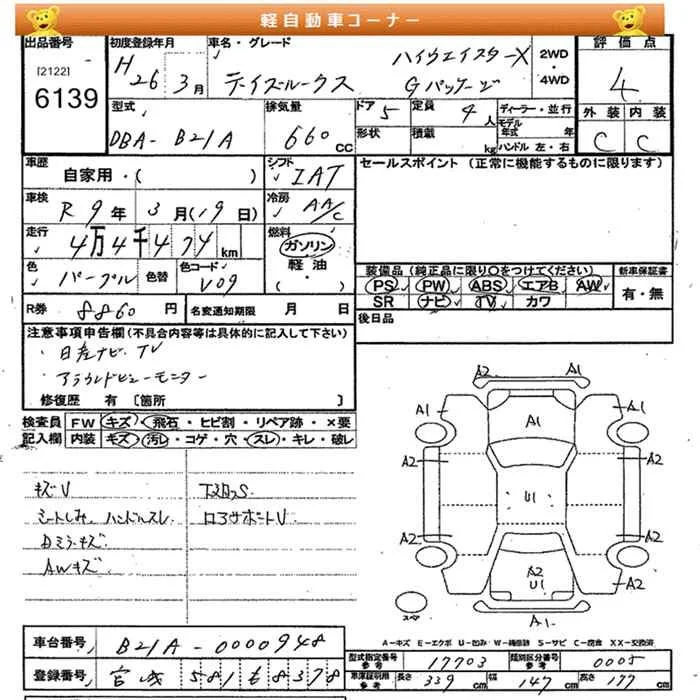 軽自動車コーナー
出品番号 初度登録年月 車名・グレード 評価点
[2122] 6139
H 26年 3月 デイズルークス ハイウェイスターX Gパッケージ 2WD・4WD 4
型式 排気量 ドア 5 定員 4人 ディーラー・並行 外装 内装
DBA-B21A 660cc 形状 積載 kg モデル年式 年 ハンドル 左・右 C C
車歴 シフト セールスポイント (正常に機能するものに限ります)
自家用・( ) IAT
車検 冷房
R 9年 3月(19日) AA/C
走行 燃料
4万4千474km ガソリン
色 色替 色コード 軽油・ 装備品 (純正品に限り○をつけてください) 新車保証書
パープル V09 ( ) PS PW ABS エアB AW 有・無
SR ナビ TV カワ
R券 8860円 名変通知期限 月 日 後日品
注意事項申告欄(不具合箇所等は具体的に記入して下さい)
・日産ナビ、TV
アラウンドビューモニター
修復歴 有〔箇所 〕
検査員 FW キズ・飛石・ヒビ割・リペア跡・×要
記入欄 内装 キズ・汚レ・コゲ・穴・スレ・キレ・破レ
キズU
シートしみ、ハンドルスレ ロアサポートU
Dミラーキズ
AWキズ
A2 A2
A1 A1 A1
A2 A2
U1
A2 A2
A2 U1 A2
スペア A1
A-キズ E-エクボ U-凹み W-補修跡 S-サビ C-腐食 XX-交換済
車台番号 B21A-0000948
型式指定番号 参考 17703 類別区分番号 参考 0005
登録番号 宮城 581 も 8378
車庫証明用 参考 長さ 339cm 幅 147cm 高さ 177cm